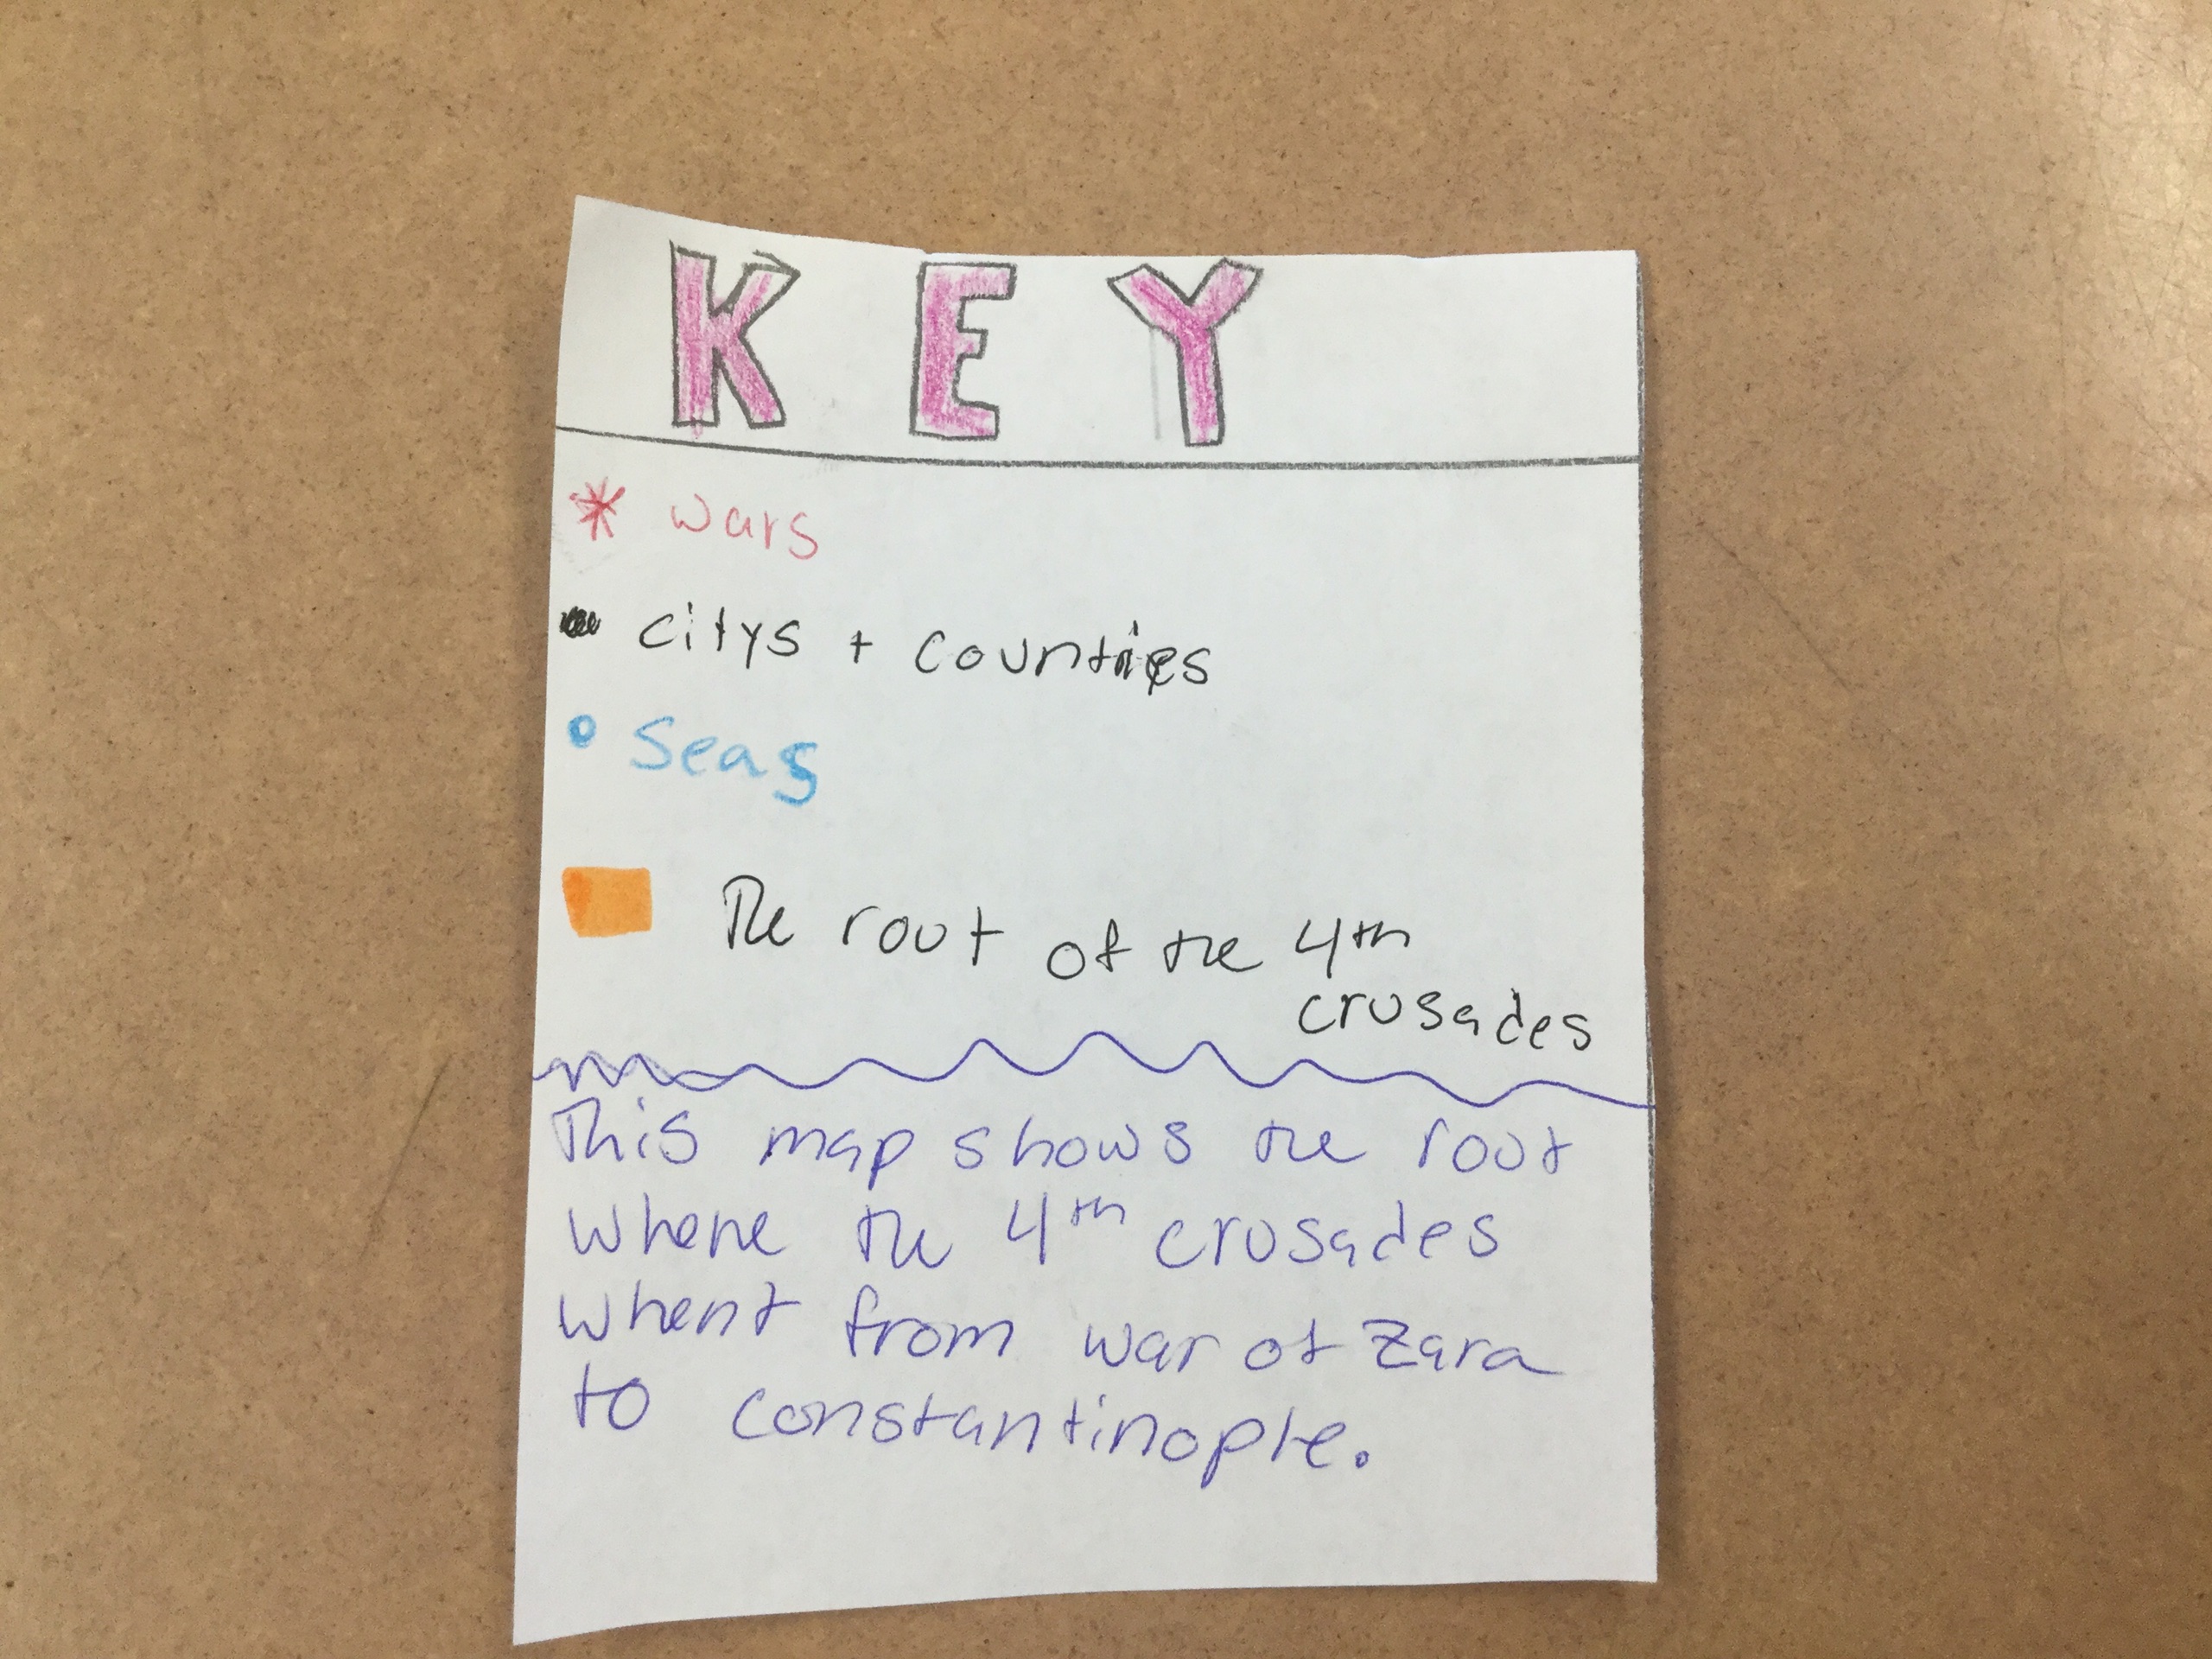 KEY
* wars
citys + countries
Seas
The rout of the 4th
crusades
This map shows the rout
where the 4th crusades
whent from war of Zara
to constantinople.